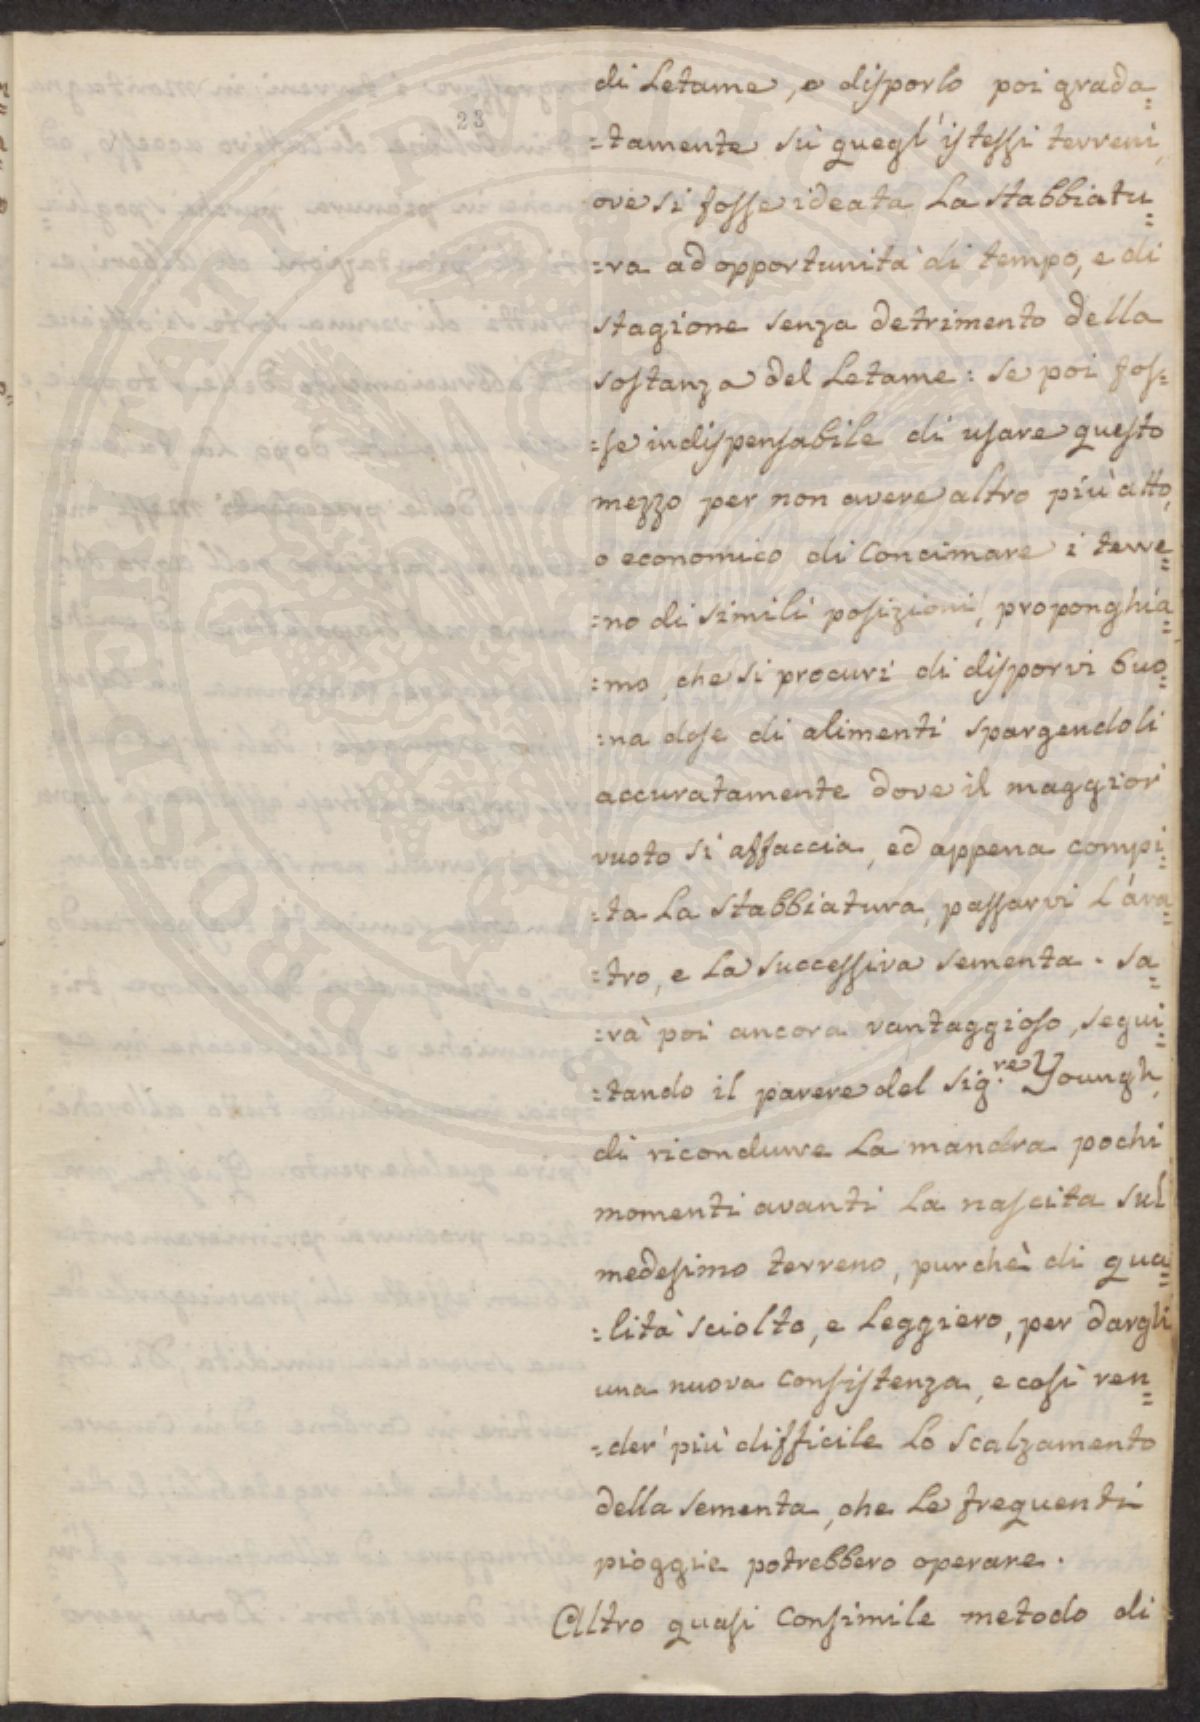 23
di Letame, o disporlo poi grada=
=tamente sù quegl'istessi terreni,
ove si fosse ideata La stabbiatu=
=ra ad opportunità di tempo, e di
stagione senza detrimento della
sostanza del Letame: se poi fos=
=se indispensabile di usare questo
mezzo per non avere altro più atto,
o economico di Concimare i terre=
=no di simili posizioni, proponghia=
=mo, che si procuri di disporvi buo=
=na dose di alimenti spargendoli
accuratamente dove il maggior
vuoto si affaccia, ed appena compi=
=ta La stabbiatura, passarvi L'ara=
=tro, e La successiva sementa. Sa=
=rà poi ancora vantaggioso, segui=
=tando il parere del Sig.re Youngh,
di ricondurre La mandra pochi
momenti avanti La nascita sul
medesimo terreno, purchè di qua=
=lità sciolto, e Leggiero, per dargli
una nuova Consistenza, e così ren=
=der' più difficile Lo Scalzamento
della sementa, che Le frequenti
pioggie potrebbero operare.
Altro quasi Consimile metodo di
PROSPERITATI PUBLICAE